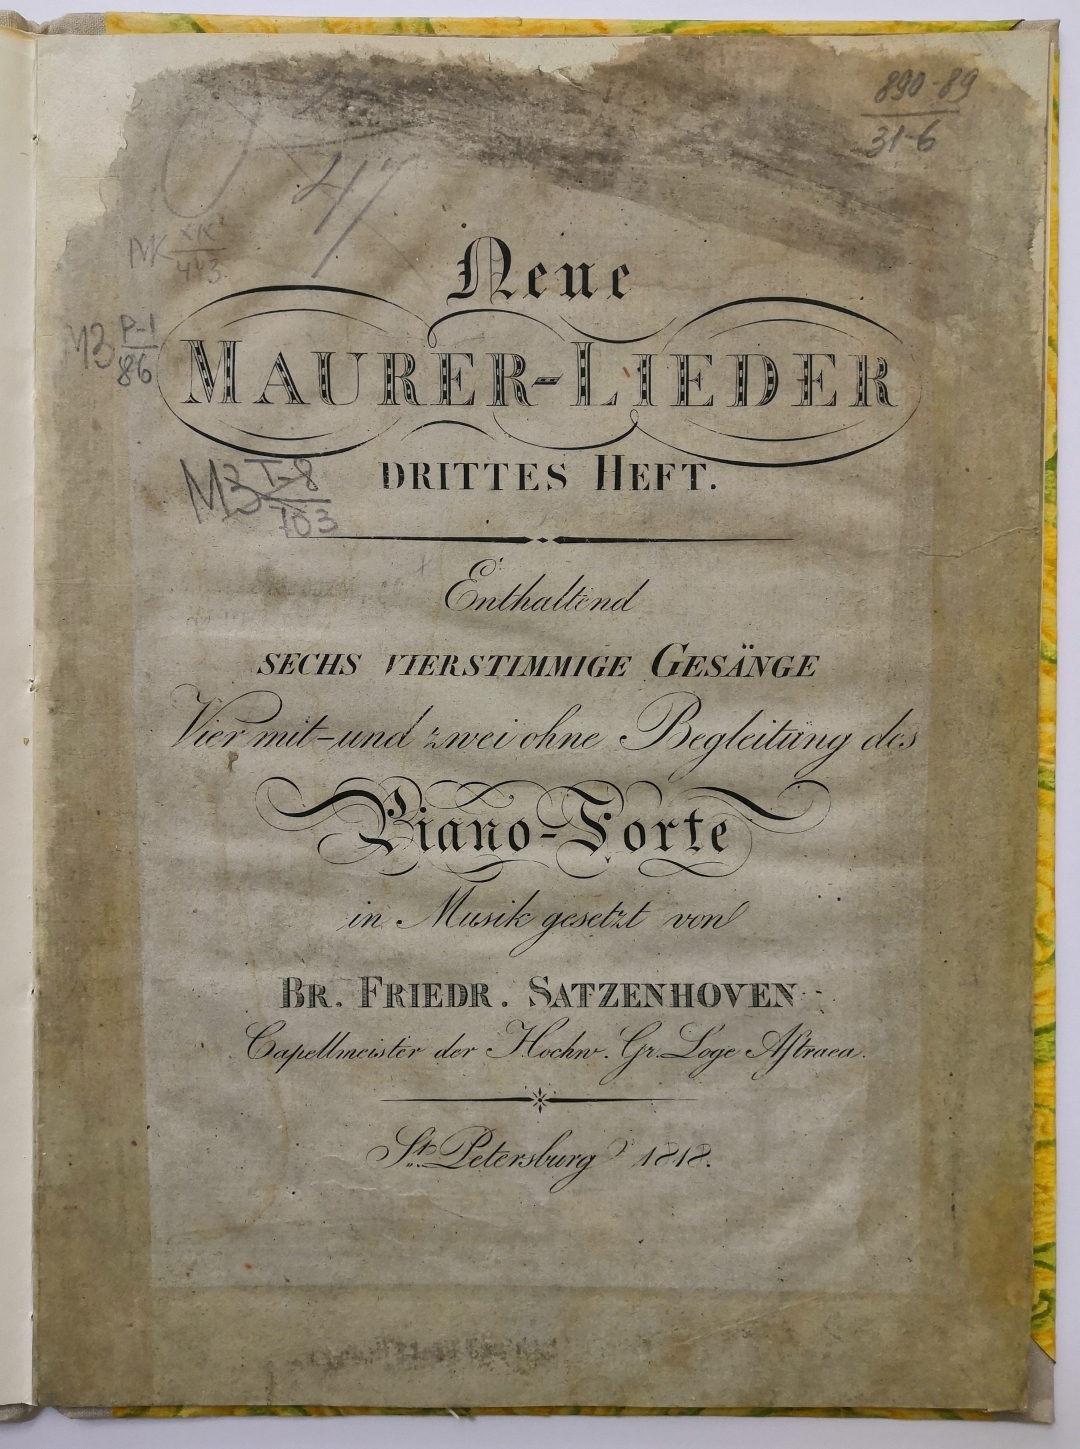 890-89
31-6
47
МК XIX
443
Neue
МЗ Р-1
86
MAURER-LIEDER
DRITTES HEFT.
МЗ Т-8
703
Enthaltend
SECHS VIERSTIMMIGE GESÄNGE
Vier mit-und zwei ohne Begleitung des
Piano-Forte
in Musik gesetzt von
BR. FRIEDR. SATZENHOVEN
Capellmeister der Hochw. Gr. Loge Aſtraea.
St. Petersburg 1818.